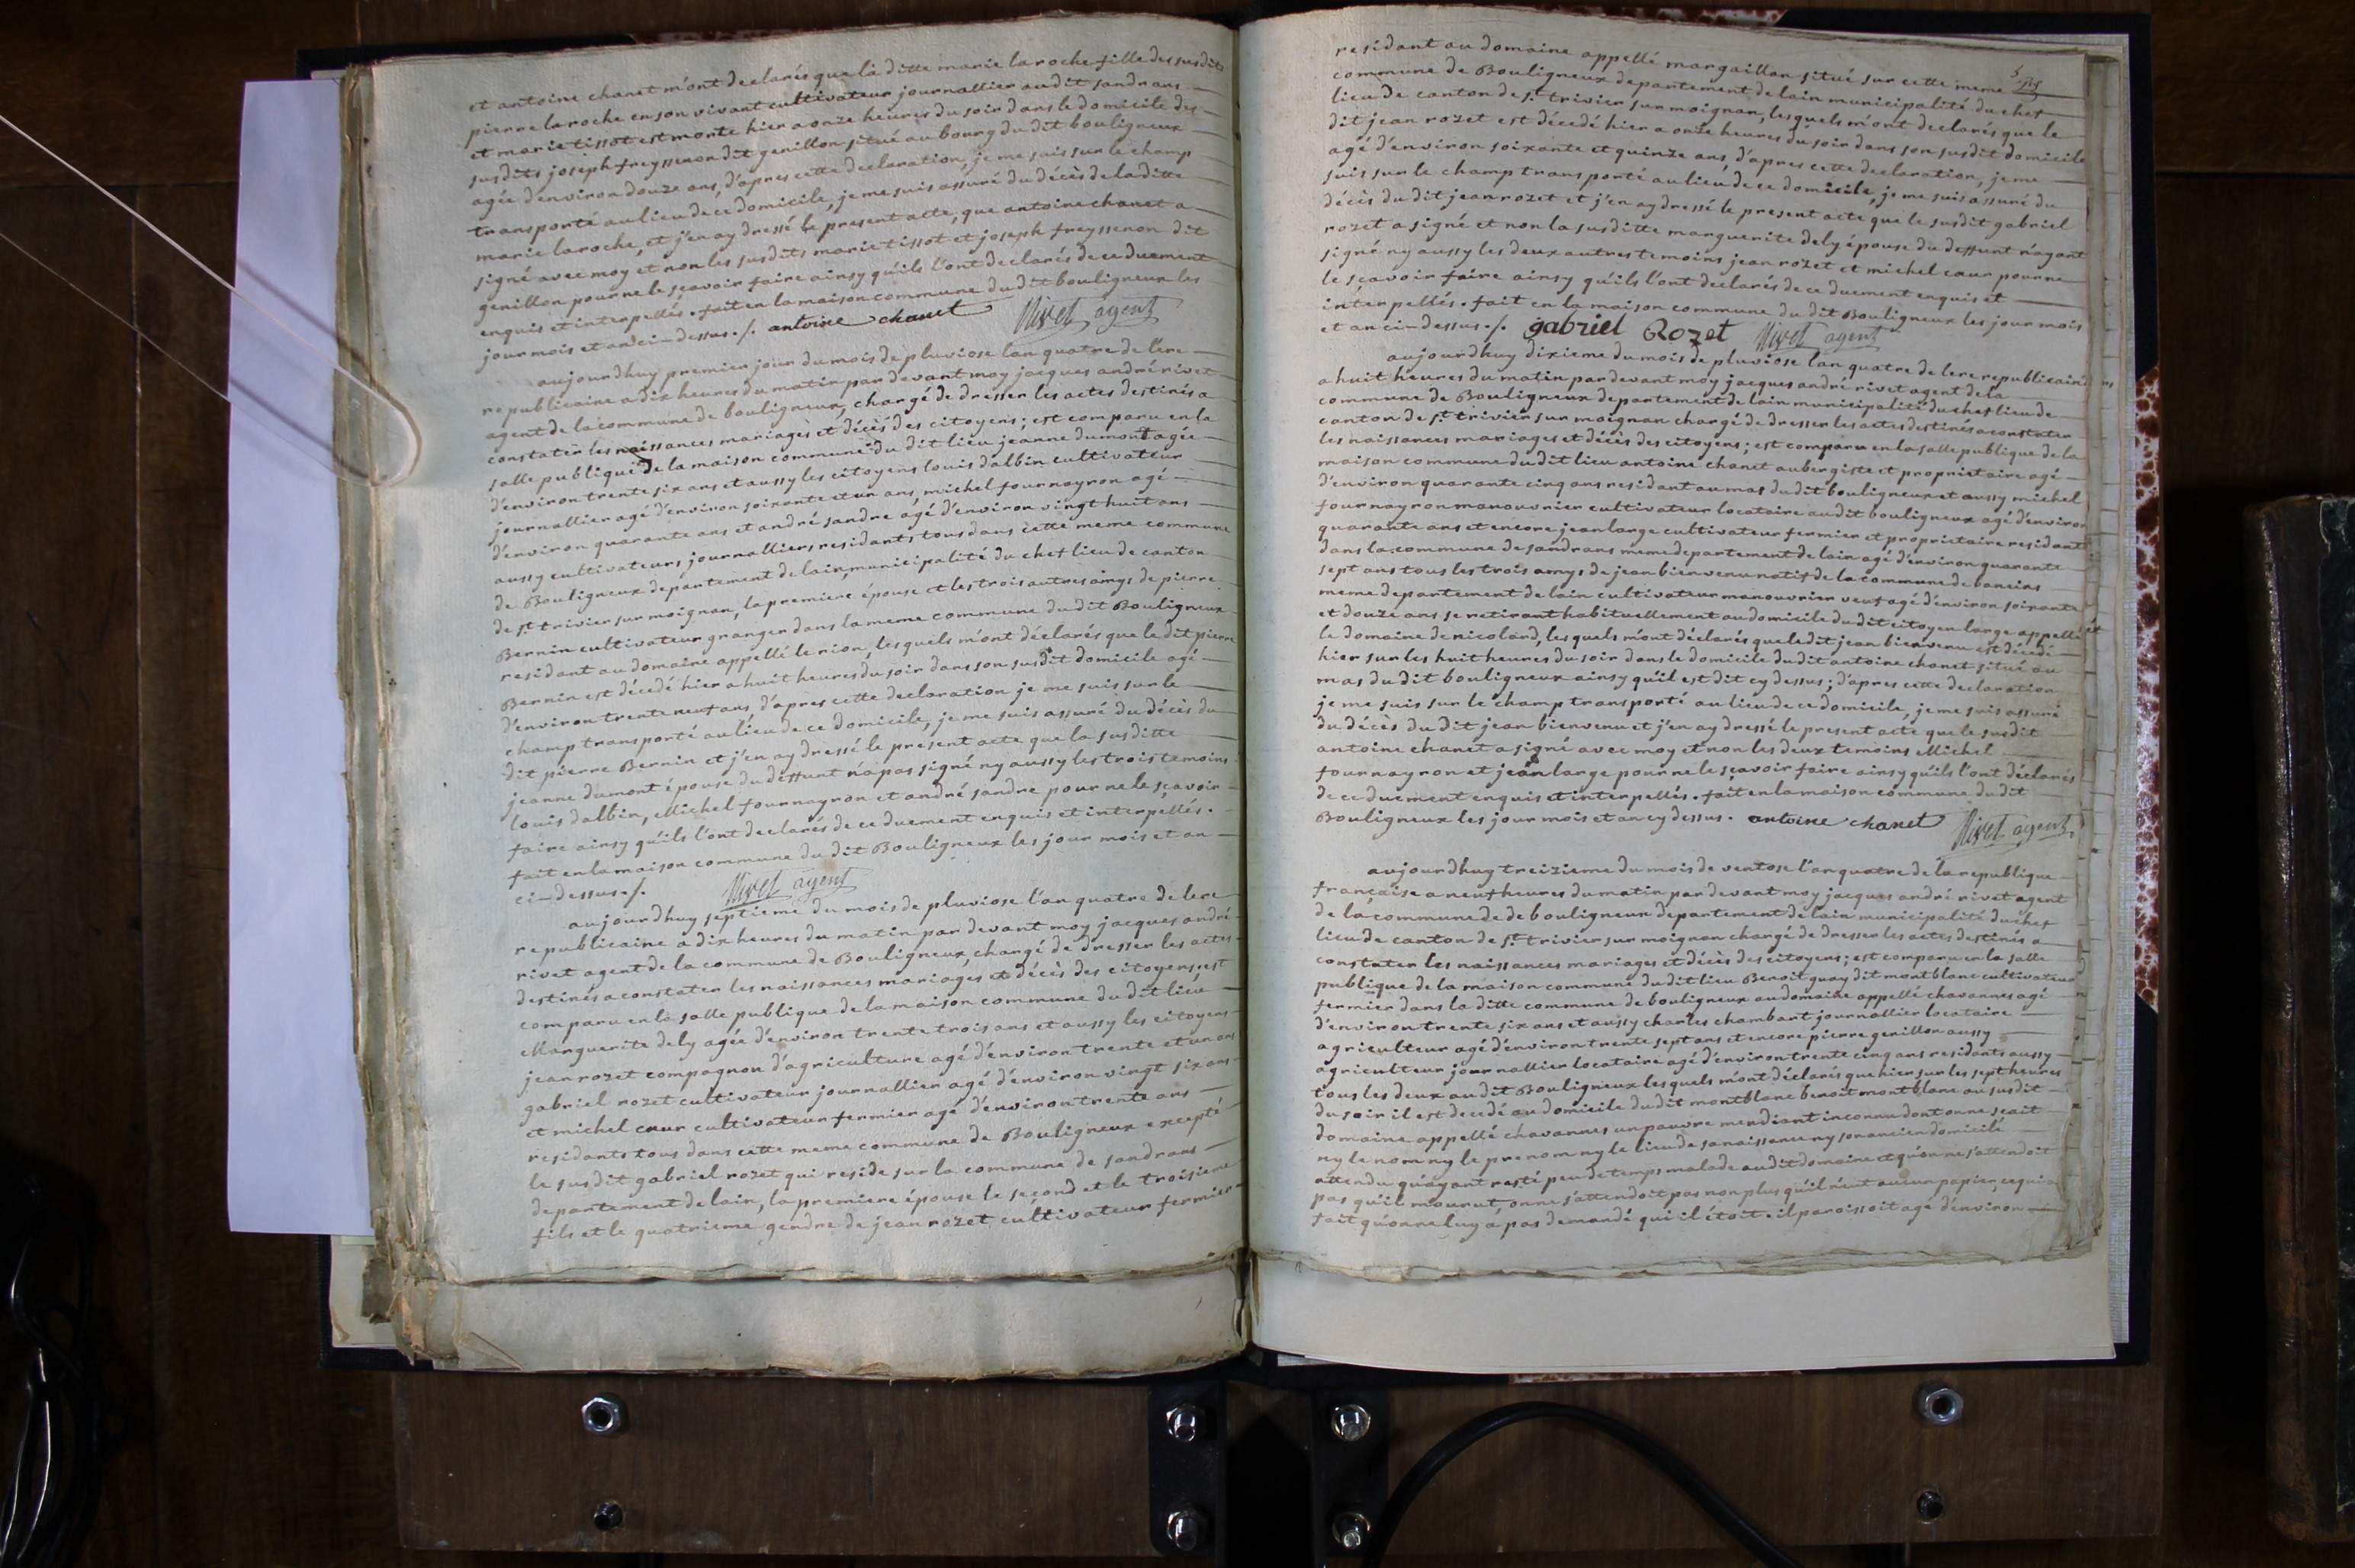 et antoine chanet m'ont declarés que la ditte marie laroche fille des susdits
pierre laroche en son vivant cultivateur journallier au dit sandrans
et marie tissot est morte hier a onze heures du soir dans le domicile des
susdits joseph freyssenon dit genillon situé au bourg du dit bouligneux
agée d'environ douze ans, d'apres cette declaration, je me suis sur le champ
transporté au lieu de ce domicile, je me suis assuré du décès de la ditte
marie laroche, et j'en ay dressé le present acte, que antoine chanet a
signé avec moy et non les susdits marie tissot et joseph freyssenon dit
genillon pour ne le sçavoir faire ainsy qu'ils l'ont declarés de ce duement
enquis et interpellés. fait en la maison commune du dit bouligneux les
jour mois et an ci-dessus./. antoine chanet Rivet agent
aujourdhuy premier jour du mois de pluviose l'an quatre de l'ere
republicaine a dix heures du matin par devant moy jacques andré rivet
agent de la commune de bouligneux, chargé de dresser les actes destinés a
constater les naissances mariages et décès des citoyens; est comparu en la
salle publique de la maison commune du dit lieu jeanne dumont agée
d'environ trente six ans et aussy les citoyens louis dalbin cultivateur
journallier agé d'environ soixante et un ans, michel fournayron agé
d'environ quarante ans et andré sandre agé d'environ vingt huit ans
aussy cultivateurs journalliers residants tous dans cette meme commune
de Bouligneux departement de lain, municipalité du chef lieu de canton
de st. trivier sur moignan, la premiere épouse et les trois autres amys de pierre
Bernin cultivateur granger dans la meme commune du dit Bouligneux
residant au domaine appellé le rion, lesquels m'ont déclarés que le dit pierre
Bernin est décedé hier a huit heures du soir dans son susdit domicile agé
d'environ trente neuf ans, d'apres cette declaration je me suis sur le
champ transporté au lieu de ce domicile, je me suis assuré du décès du
dit pierre Bernin et j'en ay dressé le present acte que la susditte
jeanne dumont épouse du deffunt n'a pas signé ny aussy les trois temoins
louis dalbin, Michel fournayron et andré sandre pour ne le sçavoir
faire ainsy qu'ils l'ont declarés de ce duement enquis et interpellés.
fait en la maison commune du dit Bouligneux les jour mois et an
ci-dessus./. Rivet agent
aujourdhuy septieme du mois de pluviose l'an quatre de lere
republicaine a dix heures du matin par devant moy jacques andré
rivet agent de la commune de Bouligneux, chargé de dresser les actes
destinés a constater les naissances mariages et décès des citoyens; est
comparu en la salle publique de la maison commune du dit lieu
Marguerite dely agée d'environ trente trois ans et aussy les citoyens
jean rozet compagnon d'agriculture agé d'environ trente et un ans
gabriel rozet cultivateur journallier agé d'environ vingt six ans
et michel cœur cultivateur fermier agé d'environ trente ans
residants tous dans cette meme commune de Bouligneux excepté
le susdit gabriel rozet qui reside sur la commune de sandrans
departement de lain, la premiere épouse le second et le troisieme
fils et le quatrieme gendre de jean rozet cultivateur fermier
residant au domaine appellé margaillan situé sur cette meme
commune de Bouligneux departement de lain municipalité du chef
lieu de canton de st. trivier sur moignan, lesquels m'ont declarés que le
dit jean rozet est décedé hier a onze heures du soir dans son susdit domicile
agé d'environ soixante et quinze ans, d'apres cette declaration, je me
suis sur le champ transporté au lieu de ce domicile, je me suis assuré du
décès du dit jean rozet et j'en ay dressé le present acte que le susdit gabriel
rozet a signé et non la susditte marguerite dely épouse du deffunt n'ayant
signé ny aussy les deux autres temoins jean rozet et michel cœur pour ne
le sçavoir faire ainsy qu'ils l'ont declarés de ce duement enquis et
interpellés. fait en la maison commune du dit Bouligneux les jour mois
et an ci-dessus./. gabriel Rozet Rivet agent
aujourdhuy dixieme du mois de pluviose lan quatre de lere republicaine
a huit heures du matin par devant moy jacques andré rivet agent de la
commune de Bouligneux departement de lain municipalité du chef lieu de
canton de st. trivier sur moignan chargé de dresser les actes destinés a constater
les naissances mariages et décès des citoyens; est comparu en la salle publique de la
maison commune du dit lieu antoine chanet aubergiste et proprietaire agé
d'environ quarante cinq ans residant au mas du dit bouligneux et aussy michel
fournayron manouvrier cultivateur locataire au dit bouligneux agé d'environ
quarante ans et encore jean large cultivateur fermier et proprietaire residant
dans la commune de sandrans meme departement de lain agé d'environ quarante
sept ans tous les trois amys de jean bienvenu natif de la commune de baneins
meme departement de lain cultivateur manouvrier veuf agé d'environ soixante
et douze ans se retirant habituellement au domicile du dit citoyen large appellé
le domaine de nicoland, lesquels m'ont déclarés que le dit jean bienvenu est décedé
hier sur les huit heures du soir dans le domicile du dit antoine chanet situé au
mas du dit bouligneux ainsy qu'il est dit cy dessus; d'apres cette declaration
je me suis sur le champ transporté au lieu de ce domicile, je me suis assuré
du décès du dit jean bienvenu et j'en ay dressé le present acte que le susdit
antoine chanet a signé avec moy et non les deux temoins Michel
fournayron et jean large pour ne le sçavoir faire ainsy qu'ils l'ont déclarés
de ce duement enquis et interpellés. fait en la maison commune du dit
Bouligneux les jour mois et an cy dessus. antoine chanet Rivet agent
aujourdhuy treizieme du mois de ventose l'an quatre de la republique
française a neuf heures du matin par devant moy jacques andré rivet agent
de la commune de de bouligneux departement de lain municipalité du chef
lieu de canton de st. trivier sur moignan chargé de dresser les actes destinés a
constater les naissances mariages et décès des citoyens; est comparu en la salle
publique de la maison commune du dit lieu Benoit guay dit montblanc cultivateur
fermier dans la ditte commune de bouligneux au domaine appellé chavannes agé
d'environ trente six ans et aussy charles chambart journallier locataire
agriculteur agé d'environ trente sept ans et encore pierre genillon aussy
agriculteur journallier locataire agé d'environ trente cinq ans residants aussy
tous les deux au dit Bouligneux lesquels m'ont déclarés que hier sur les sept heures
du soir il est decedé au domicile du dit montblanc benoit montblanc au susdit
domaine appellé chavannes un pauvre mendiant inconnu dont on ne sçait
ny le nom ny le prenom ny le lieu de sa naissance ny son ancien domicile
attendu qu'ayant resté peu de temps malade au dit domaine et qu'on ne s'attendoit
pas qu'il mourut, on ne s'attendoit pas non plus qu'il n'eut aucun papier, ce qui a
fait qu'on ne luy a pas demandé qui il étoit. il paroissoit agé d'environ